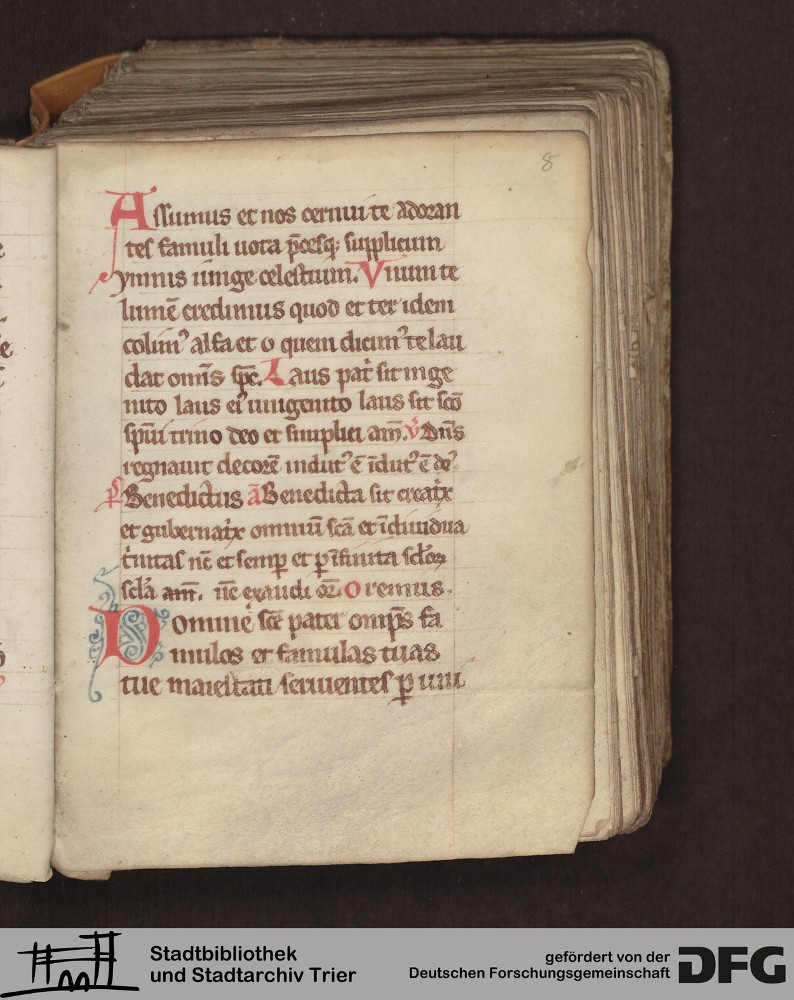 8
Assumus et nos cernui te adoran
tes famuli uota p̄cesq; supplicum
ymnis iunge celestium. Vnum te
lumē credimus quod et ter idem
colimꝰ alfa et o quem dicimꝰ te lau
dat omīs sp̄c. Laus pat̄ sit inge
nito laus eiꝰ unigenito laus sit sc̄o
sp̄ui trino deo et simplici am̄. v̊ Dn̄s
regnauit decorē indutꝰ ē īdutꝰ ē dēꝰ
p̊s Benedictus ā Benedicta sit creat̄x
et gubernat̄x omniū sc̄a et īdiuidua
t̄nitas nc̄ et semp̱ et p̱ īfinita sclōꝝ
scl̄a am̄. n̄e exaudi oꝝ. Oremus.
Domine sc̄e pater omp̄s fa
mulos et famulas tuas
tue maiestati seruientes p̱ uni
Stadtbibliothek
und Stadtarchiv Trier
gefördert von der
Deutschen Forschungsgemeinschaft
DFG